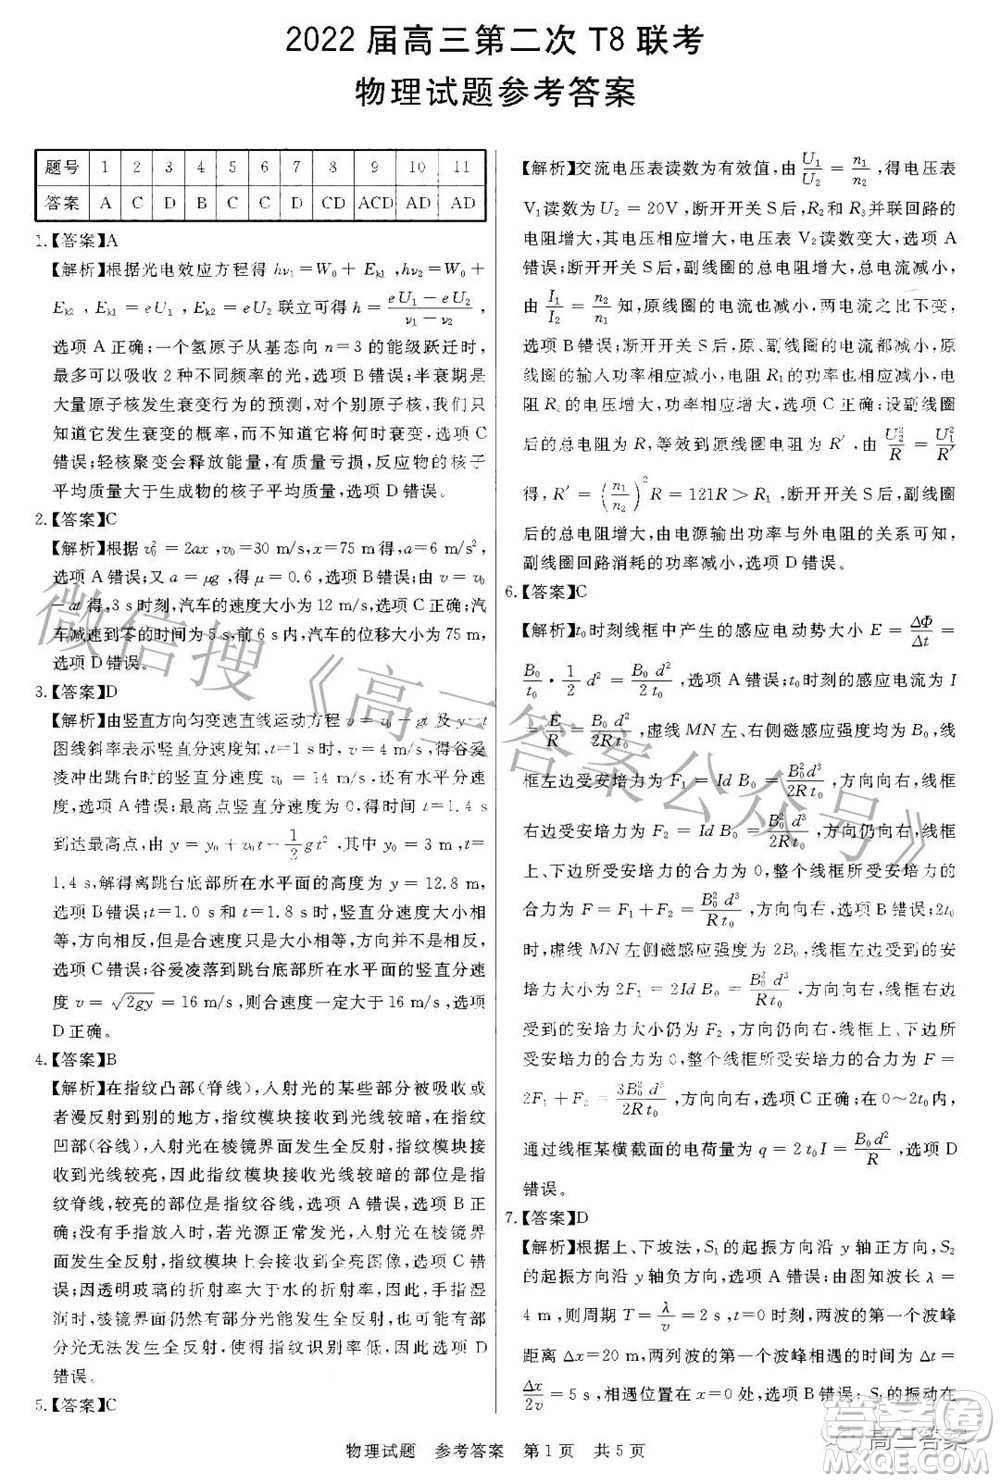 2022 届高三第二次 T8 联考
物理试题参考答案
题号 1 2 3 4 5 6 7 8 9 10 11
答案 A C D B C C D CD ACD AD AD
1.【答案】A
【解析】根据光电效应方程得 hν₁=W₀+E_{k1},hν₂=W₀+
E_{k2},E_{k1}=eU₁,E_{k2}=eU₂ 联立可得 h=\frac{eU₁-eU₂}{ν₁-ν₂},
选项 A 正确;一个氢原子从基态向 n=3 的能级跃迁时,
最多可以吸收 2 种不同频率的光,选项 B 错误;半衰期是
大量原子核发生衰变行为的预测,对个别原子核,我们只
知道它发生衰变的概率,而不知道它何时衰变,选项 C
错误;轻核聚变会释放能量,有质量亏损,反应物的核子
平均质量大于生成物的核子平均质量,选项 D 错误。
2.【答案】C
【解析】根据 v₀²=2ax,v₀=30 m/s,x=75 m 得,a=6 m/s²,
选项 A 错误;又 a=μg,得 μ=0.6,选项 B 错误;由 v=v₀
-at 得,3 s 时刻,汽车的速度大小为 12 m/s,选项 C 正确;汽
车减速到零的时间为 5 s,前 6 s 内,汽车的位移大小为 75 m,
选项 D 错误。
3.【答案】D
【解析】由竖直方向匀变速直线运动方程 v=v₀-gt 及 y-t
图线斜率表示竖直分速度知,t=1 s 时,v=4 m/s,得谷爱
凌冲出跳台时的竖直分速度 v₀=14 m/s,还有水平分速
度,选项 A 错误;最高点竖直分速度为 0,经过时间 t=1.4 s
到达最高点,由 y=y₀+v₀t-\frac{1}{2}gt² 可得 y₀=3 m,当 t=
1.4 s,解得离跳台底部所在水平面的高度为 y=12.8 m,
选项 B 错误;t=1.0 s 和 t=1.8 s 时,竖直分速度大小相
等,方向相反,但是合速度大小相等,方向不是相反,选
项 C 错误;谷爱凌落到跳台底部所在水平面的竖直分速
度 v=√2gy=16 m/s,则合速度一定大于 16 m/s,选项
D 正确。
4.【答案】B
【解析】在指纹凸部(脊线),入射光的某些部分被吸收或
者漫反射到别的地方,指纹模块接收到光线较暗,在指纹
凹部(谷线),入射光在棱镜界面发生全反射,指纹模块接
收到光线较亮,因此,指纹模块接收到光线较暗的部位是
指纹脊线,较亮的部位是指纹谷线,选项 A 错误,选项 B 正
确;没有手指放上去时,若光源正常发光,入射光在棱镜界
面发生全反射,指纹模块上会接收到全部的光,选项 C 错
误;因透明玻璃的折射率大于水的折射率,当手指潮湿
润时,棱镜界面仍然有部分光能发生全反射,也可能有部
分光无法发生全反射,使得指纹识别率低,选项 D
错误。
5.【答案】C
【解析】交流电压表读数为有效值,由 \frac{U₁}{U₂}=\frac{n₁}{n₂},得电压表
V₁读数为 U₂=20V,断开开关 S 后,R₂ 和 R₃ 并联回路的
电阻增大,其电压相应增大,电压表 V₂ 读数变大,选项 A
错误;断开开关 S 后,副线圈的总电阻增大,总电流减小,
由 \frac{I₁}{I₂}=\frac{n₂}{n₁} 知,原线圈的电流也减小,两电流之比不变,
选项 B 错误;断开开关 S 后,原、副线圈的电流减小,原
线圈的输入功率相应减小,电阻 R₁ 的功率减小,而定值电
阻 R₂ 的电压增大,功率增大,选项 C 正确;设副线圈
后的总电阻为 R,等效到原线圈电阻为 R′,由 \frac{U₂²}{R}=\frac{U₁²}{R′}
得,R′=(\frac{n₁}{n₂})²R=121R>R₁,断开开关 S 后,副线圈
的总电阻增大,由电源输出功率与外电阻的关系可知,
副线圈回路消耗的功率减小,选项 D 错误。
6.【答案】C
【解析】t₀时刻线框中产生的感应电动势大小 E=\frac{ΔΦ}{Δt}=
\frac{B₀}{t₀}·\frac{1}{2}d²=\frac{B₀d²}{2t₀},选项 A 错误;t₀时刻的感应电流为 I
=\frac{E}{R}=\frac{B₀d²}{2Rt₀},虚线 MN 左、右侧磁感应强度均为 B₀,线
框左边受安培力为 F₁=IdB₀=\frac{B₀²d³}{2Rt₀},方向向右,线框
右边受安培力为 F₂=IdB₀=\frac{B₀²d³}{2Rt₀},方向仍向右,线框
上、下边所受安培力的合力为 0,整个线框所受安培力的
合力为 F=F₁+F₂=\frac{B₀²d³}{Rt₀},方向向右,选项 B 错误;2t₀
时,虚线 MN 左侧磁感应强度为 2B₀,线框左边受安培力
大小为 2F₁=2IdB₀=\frac{B₀²d³}{Rt₀},方向仍向右,线框右边
受到的安培力大小仍为 F₂,方向仍向右,线框上、下边受
安培力的合力为 0,整个线框所受安培力的合力为 F=
2F₁+F₂=\frac{3B₀²d³}{2Rt₀},方向向右,选项 C 正确;在 0~2t₀内,
通过线框某横截面的电荷量为 q=2t₀I=\frac{B₀d²}{R},选项 D
错误。
7.【答案】D
【解析】根据上、下坡法,S₁ 的起振方向沿 y 轴正方向,S₂
的起振方向沿 y 轴负方向,选项 A 错误;由图知波长 λ=
4 m,则周期 T=\frac{λ}{v}=2 s,t=0 时刻,两波的第一个波峰
距离 Δx=20 m,两列波的第一个波峰相遇的时间 Δt=
\frac{Δx}{2v}=5 s,相遇位置在 x=0 处,选项 B 错误;S₁ 在振动
物理试题 参考答案 第 1 页 共 5 页
微信搜《高三答案公众号》
高三答案